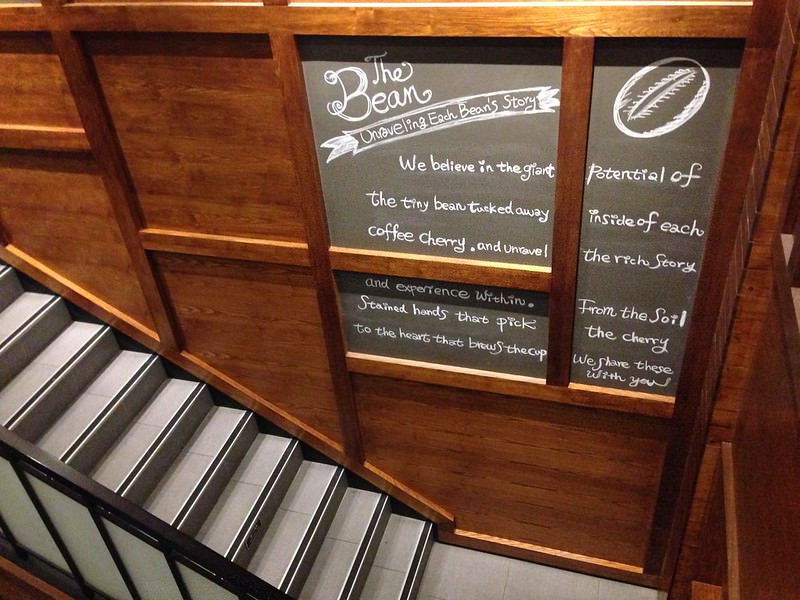 The
Bean
Unraveling Each Bean's Story
We believe in the giant
the tiny bean tucked away
coffee cherry. and unravel
and experience within.
Stained hands that pick
to the heart that brews the cup
Potential of
inside of each
the rich Story
From the Soil
the cherry
We share these
With you